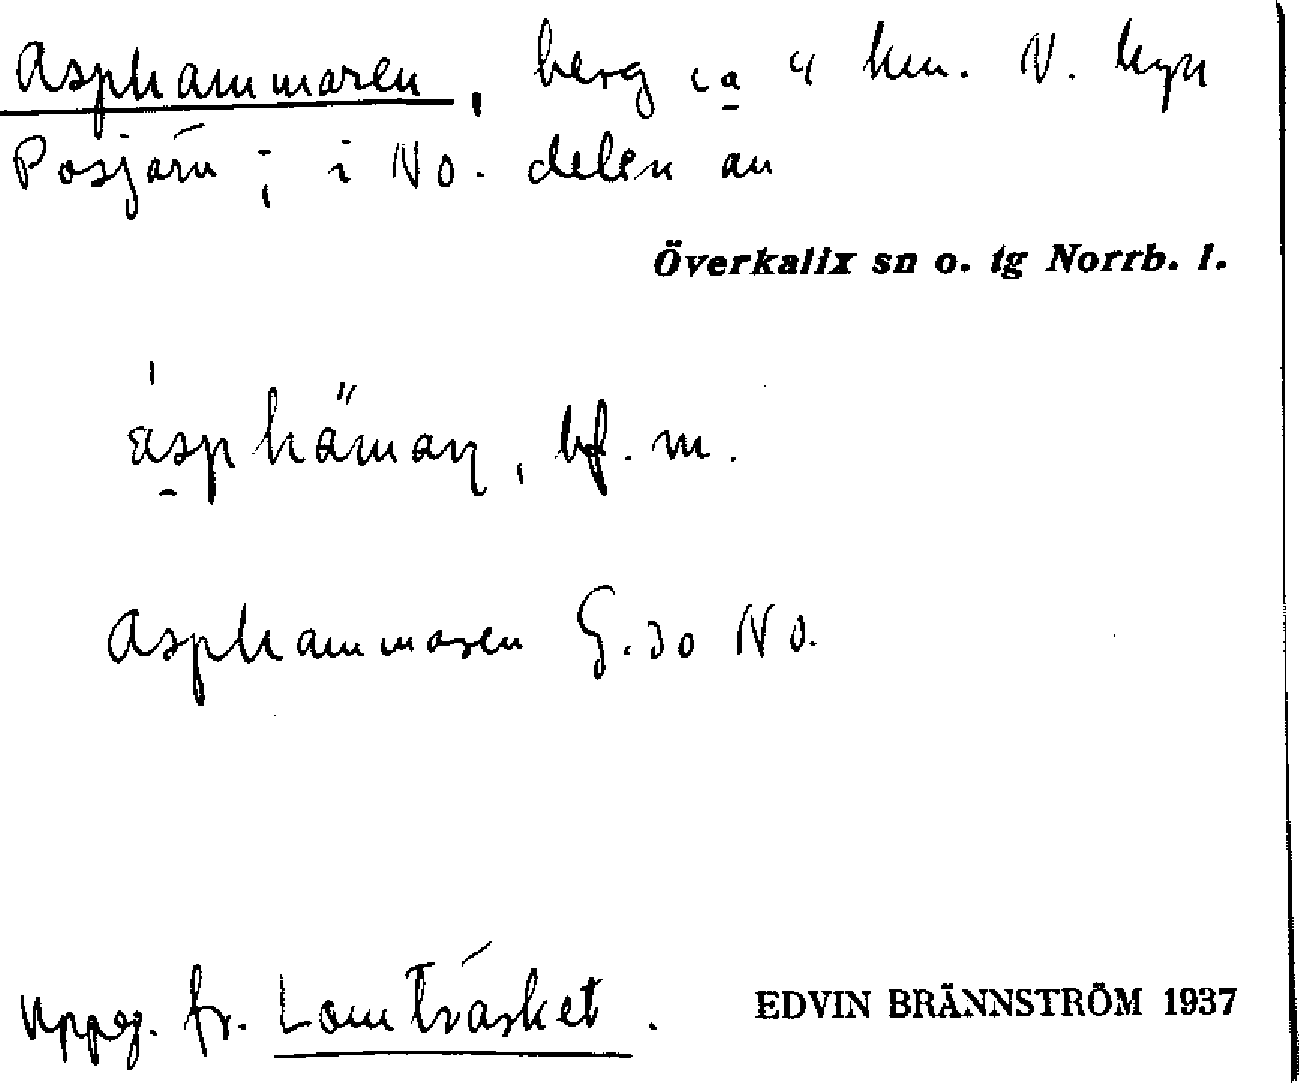 Asphammaren, berg ca 4 km. N. byn
Posjärv; i NO. delen av
Överkalix sn o. tg Norrb. l.
bf. m.
Asphammaren G. 30 NO.
Uppg. fr. Lomträsket.
EDVIN BRÄNNSTRÖM 1937